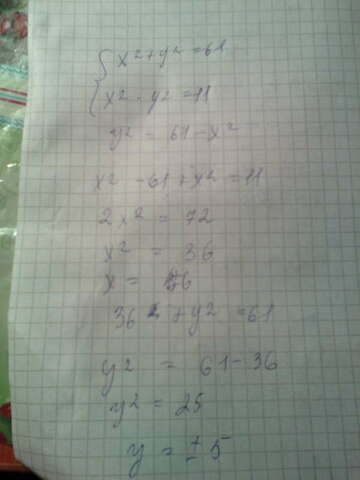 { x² + y² = 61
x² - y² = 11
y² = 61 - x²
x² - 61 + x² = 11
2x² = 72
x² = 36
x = ±6
36 + y² = 61
y² = 61 - 36
y² = 25
y = ±5